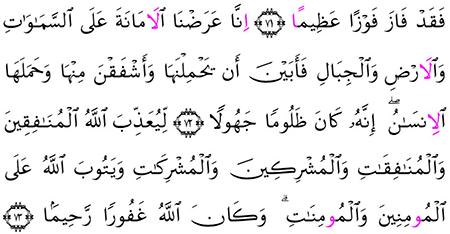 فَقَدْ فَازَ فَوْزًا عَظِيمًا ۝٧١ اِنَّا عَرَضْنَا اَ۬لَامَانَةَ عَلَى اَ۬لسَّمَٰوَٰتِ
وَالَارْضِ وَالْجِبَالِ فَأَبَيْنَ أَن يَحْمِلْنَهَا وَأَشْفَقْنَ مِنْهَا وَحَمَلَهَا
اَ۬لِانسَٰنُۖ إِنَّهُۥ كَانَ ظَلُومًا جَهُولًا ۝٧٢ لِّيُعَذِّبَ اَ۬للَّهُ اُ۬لْمُنَٰفِقِينَ
وَالْمُنَٰفِقَٰتِ وَالْمُشْرِكِينَ وَالْمُشْرِكَٰتِ وَيَتُوبَ اَ۬للَّهُ عَلَى
اَ۬لْمُومِنِينَ وَالْمُومِنَٰتِۗ وَكَانَ اَ۬للَّهُ غَفُورًا رَّحِيمًا ۝٧٣